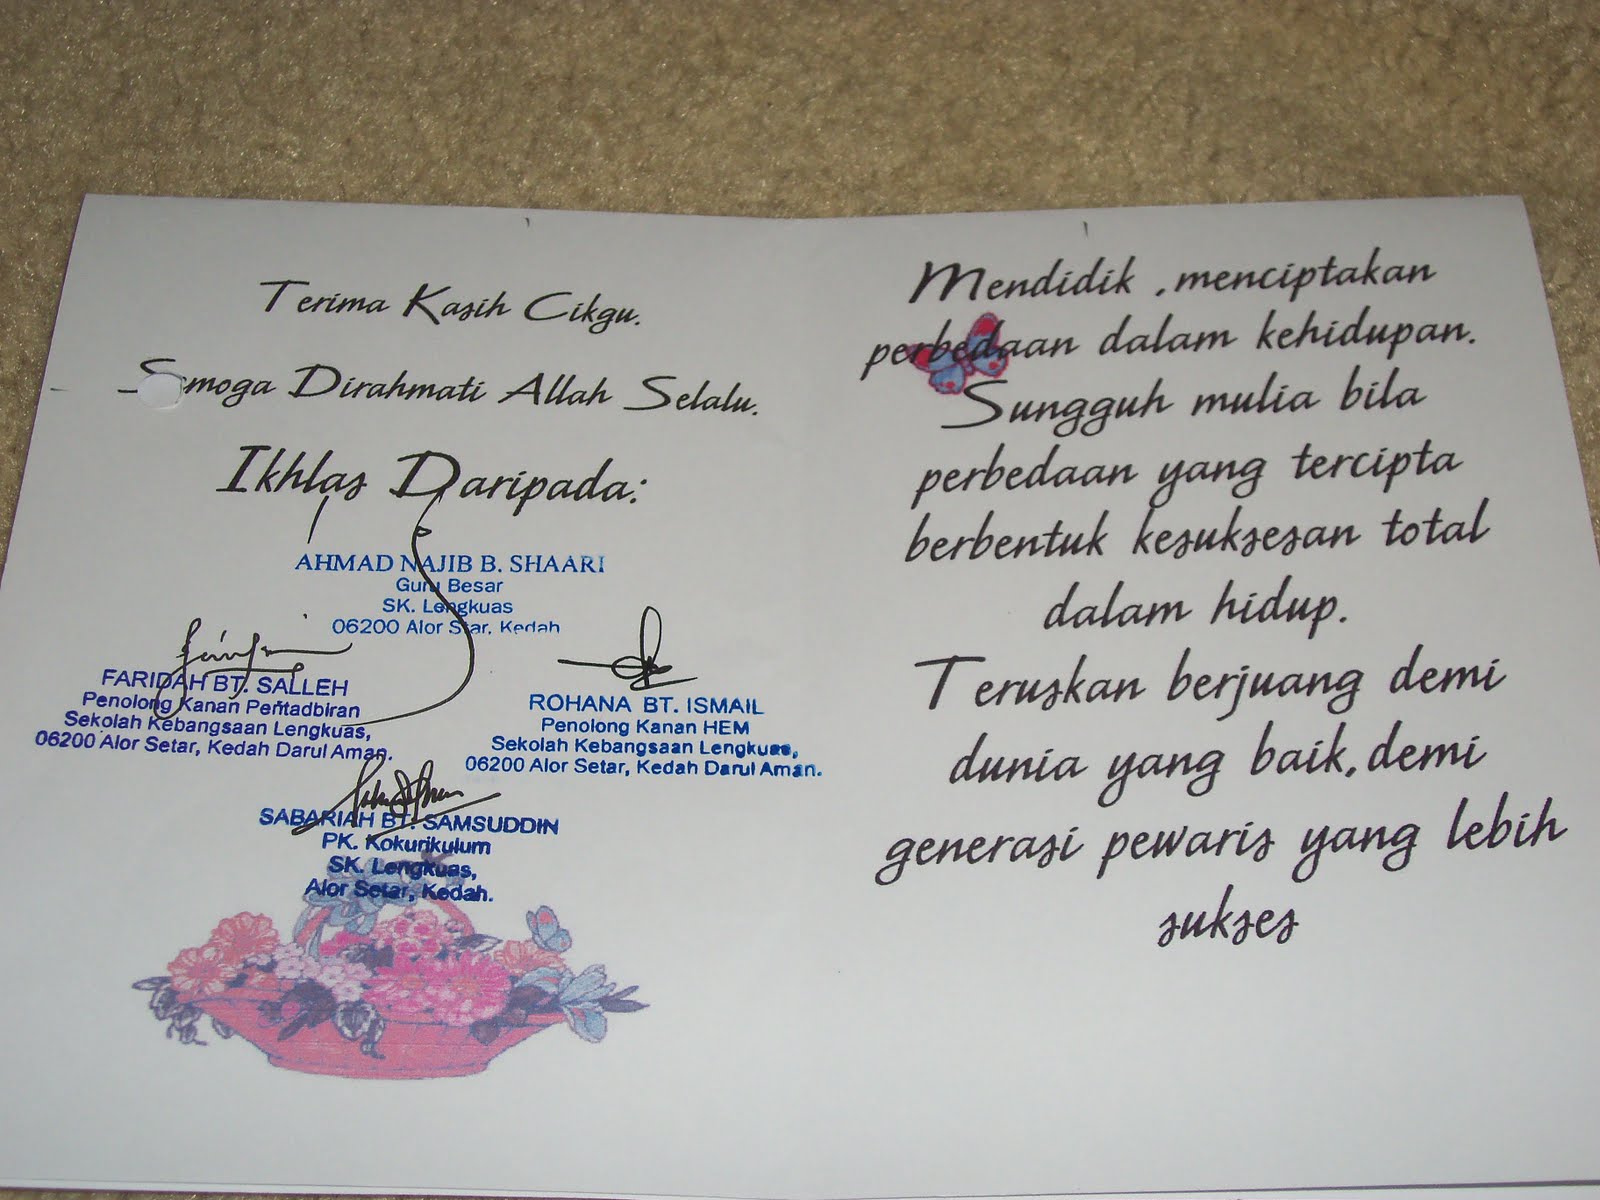 Terima Kasih Cikgu.
Semoga Dirahmati Allah Selalu.
Ikhlas Daripada:
AHMAD NAJIB B. SHAARI
Guru Besar
SK. Lengkuas
06200 Alor Star, Kedah
FARIDAH BT. SALLEH
Penolong Kanan Pentadbiran
Sekolah Kebangsaan Lengkuas,
06200 Alor Setar, Kedah Darul Aman.
ROHANA BT. ISMAIL
Penolong Kanan HEM
Sekolah Kebangsaan Lengkuas,
06200 Alor Setar, Kedah Darul Aman.
SABARIAH BT. SAMSUDDIN
PK. Kokurikulum
SK. Lengkuas,
Alor Setar, Kedah.
Mendidik ,menciptakan
perbedaan dalam kehidupan.
Sungguh mulia bila
perbedaan yang tercipta
berbentuk kesuksesan total
dalam hidup.
Teruskan berjuang demi
dunia yang baik,demi
generasi pewaris yang lebih
sukses